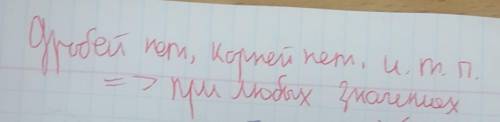 Дробей нет, корней нет, и. т. п.
=> при любых значениях